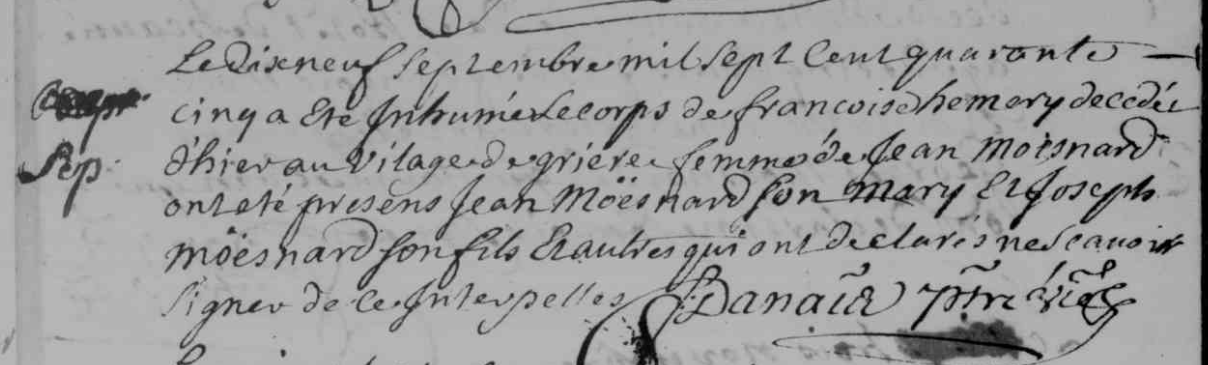 Le dix neuf septembre mil sept Cent quarante
cinq a Eté Inhumé le corps de francoise hemery decedée
Sep.
d'hier au vilage de griere femme de Jean Moisnard
ont eté presens Jean Möesnard son mary Et Joseph
möesnard son fils Et autres qui ont declarés ne scavoir
signer de ce Interpelles